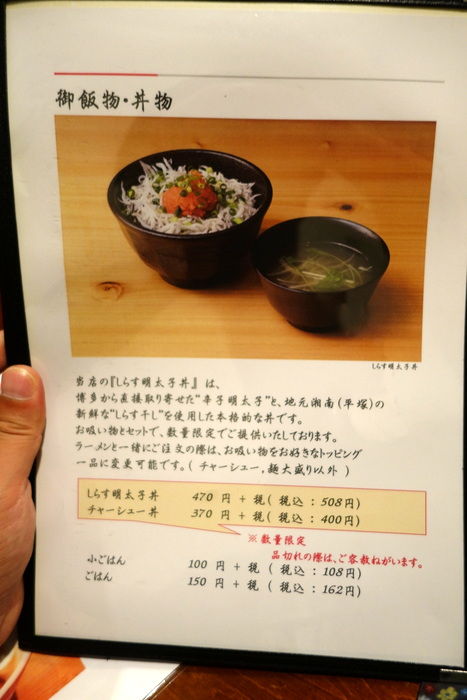 御飯物・丼物
しらす明太子丼
当店の『しらす明太子丼』は、
博多から直接取り寄せた"辛子明太子"と、地元湘南(平塚)の
新鮮な"しらす干し"を使用した本格的な丼です。
お吸い物とセットで、数量限定でご提供いたしております。
ラーメンと一緒にご注文の際は、お吸い物をお好きなトッピング
一品に変更可能です。( チャーシュー , 麺大盛り以外 )
しらす明太子丼 470 円 + 税( 税込 : 508円)
チャーシュー丼 370 円 + 税( 税込 : 400円)
※数量限定
品切れの際は、ご容赦ねがいます。
小ごはん 100 円 + 税 ( 税込 : 108円)
ごはん 150 円 + 税 ( 税込 : 162円)